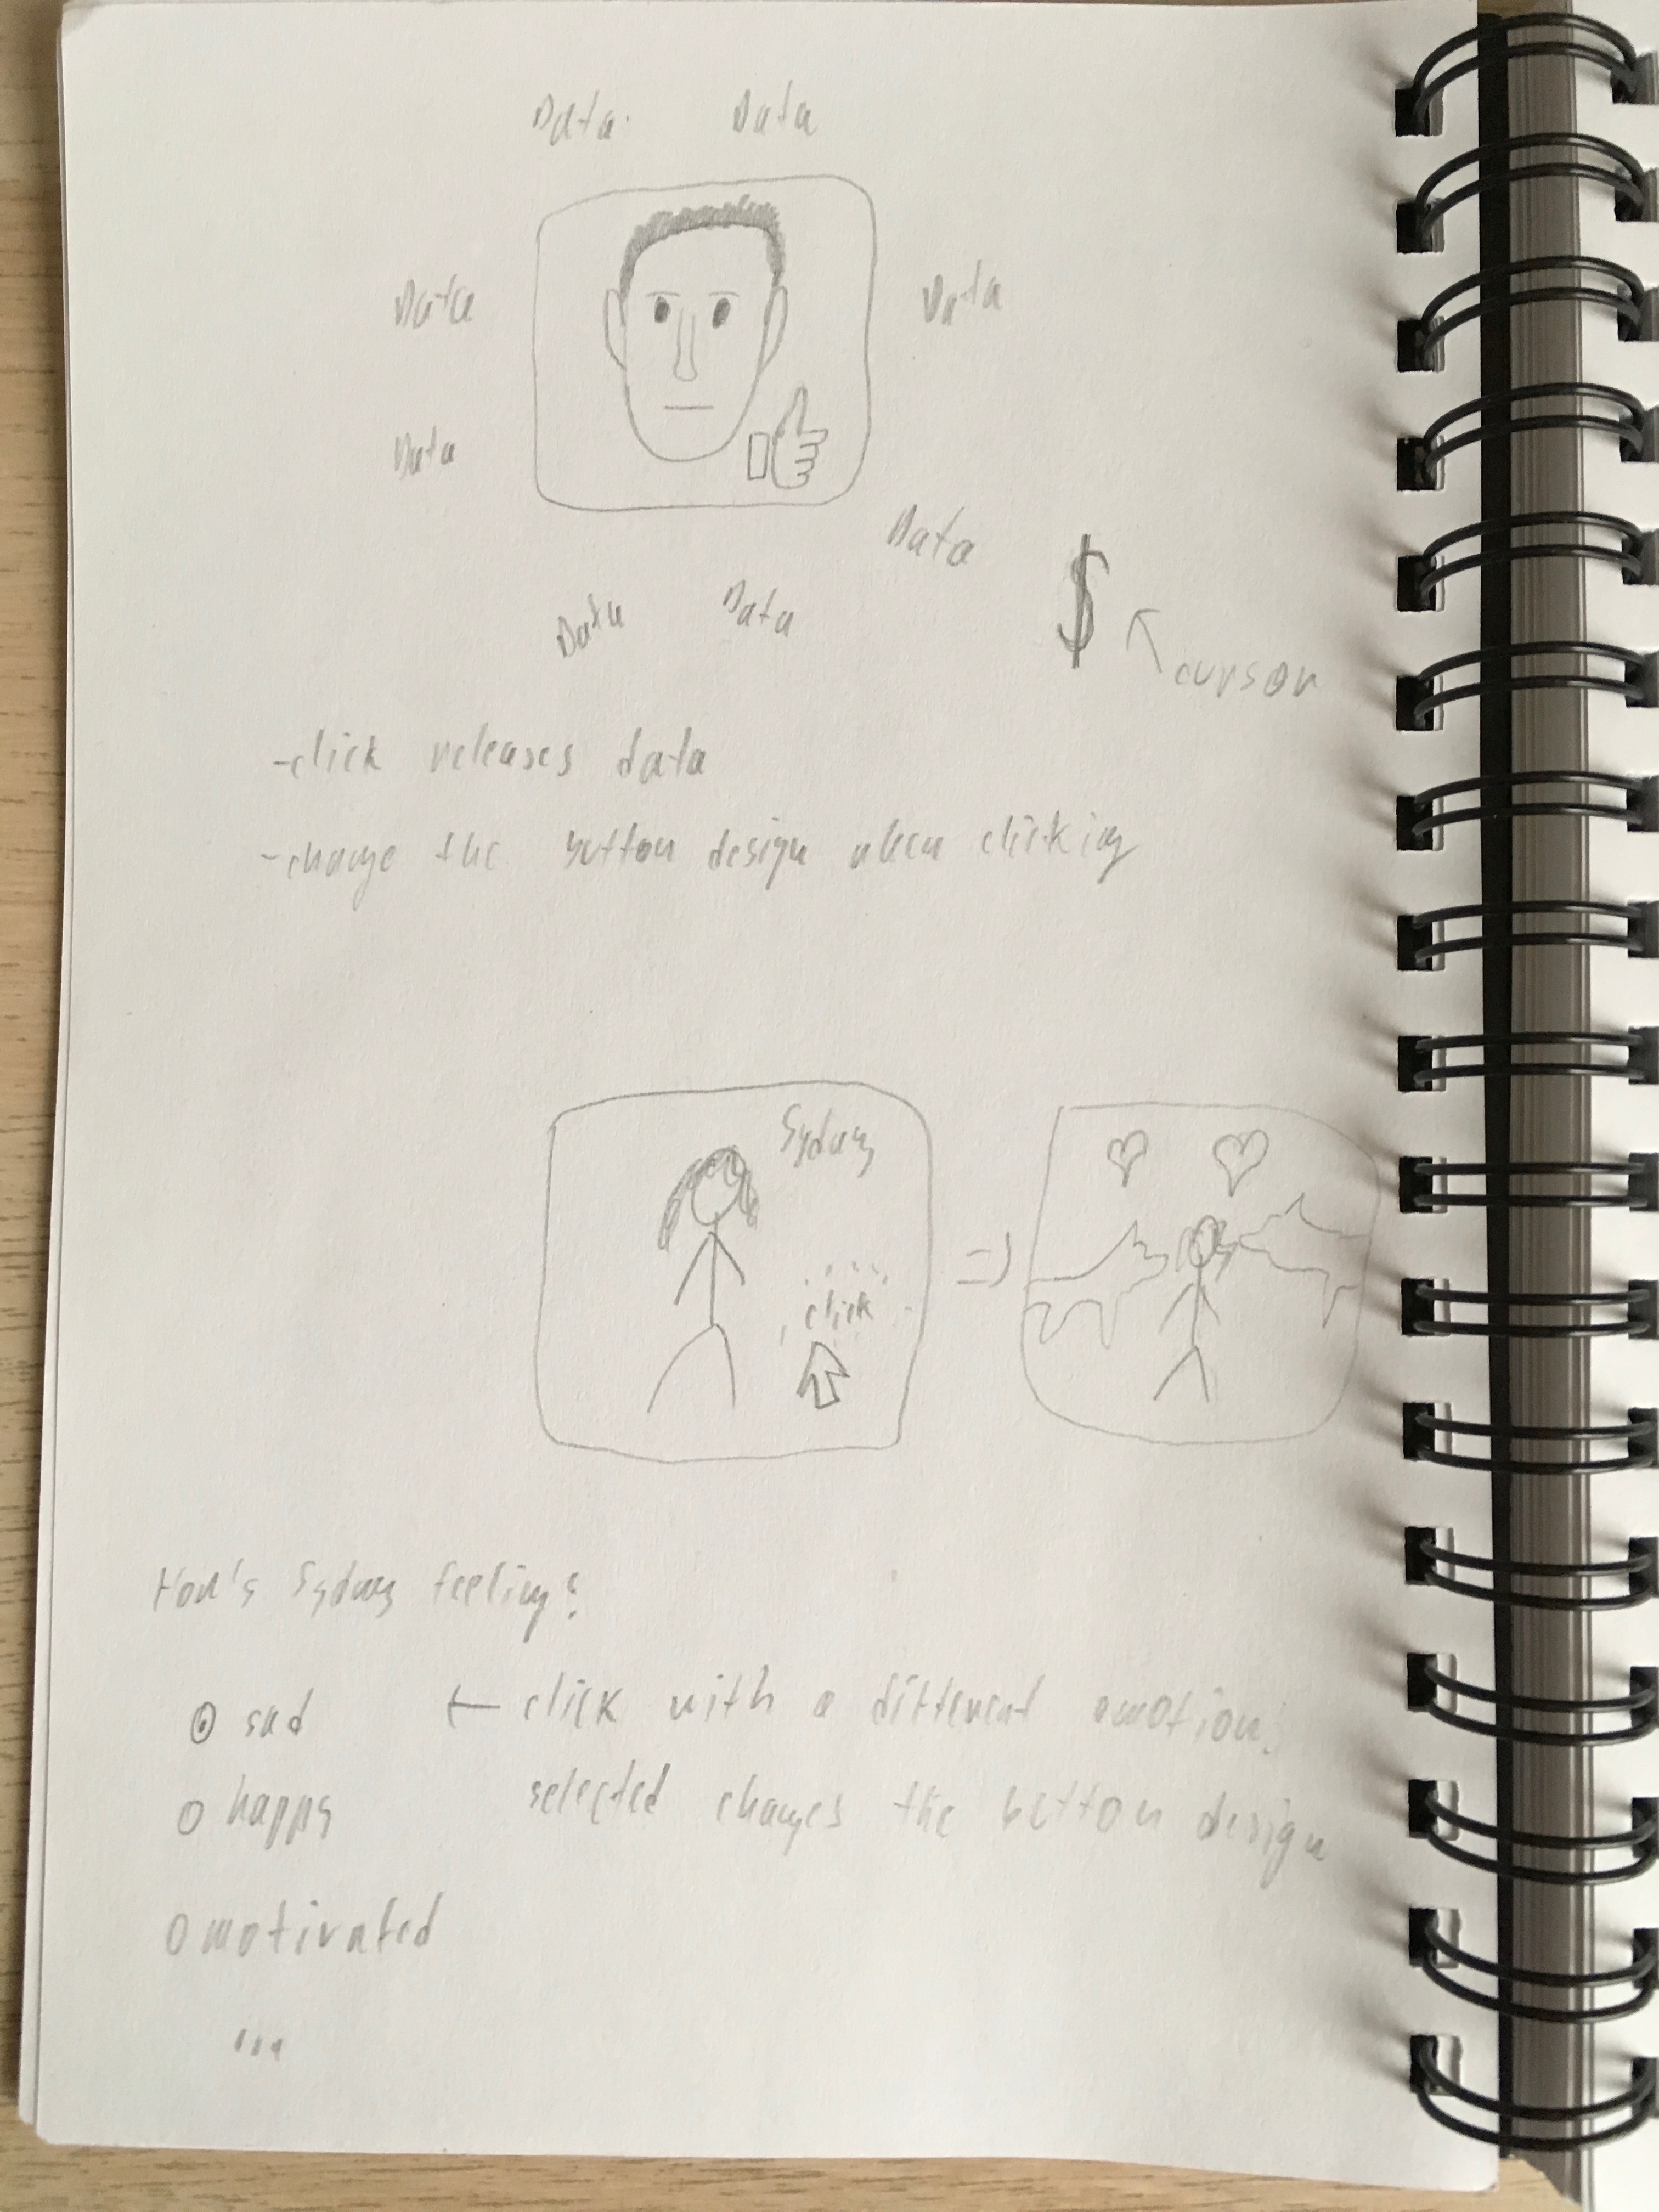 Data Data
Data Data
Data
Data
Data Data
$
cursor
-click releases data
-change the button design when clicking
Sydney
click
How's Sydney feeling?
sad
click with a different emotion
happy
selected changes the button design
motivated
...